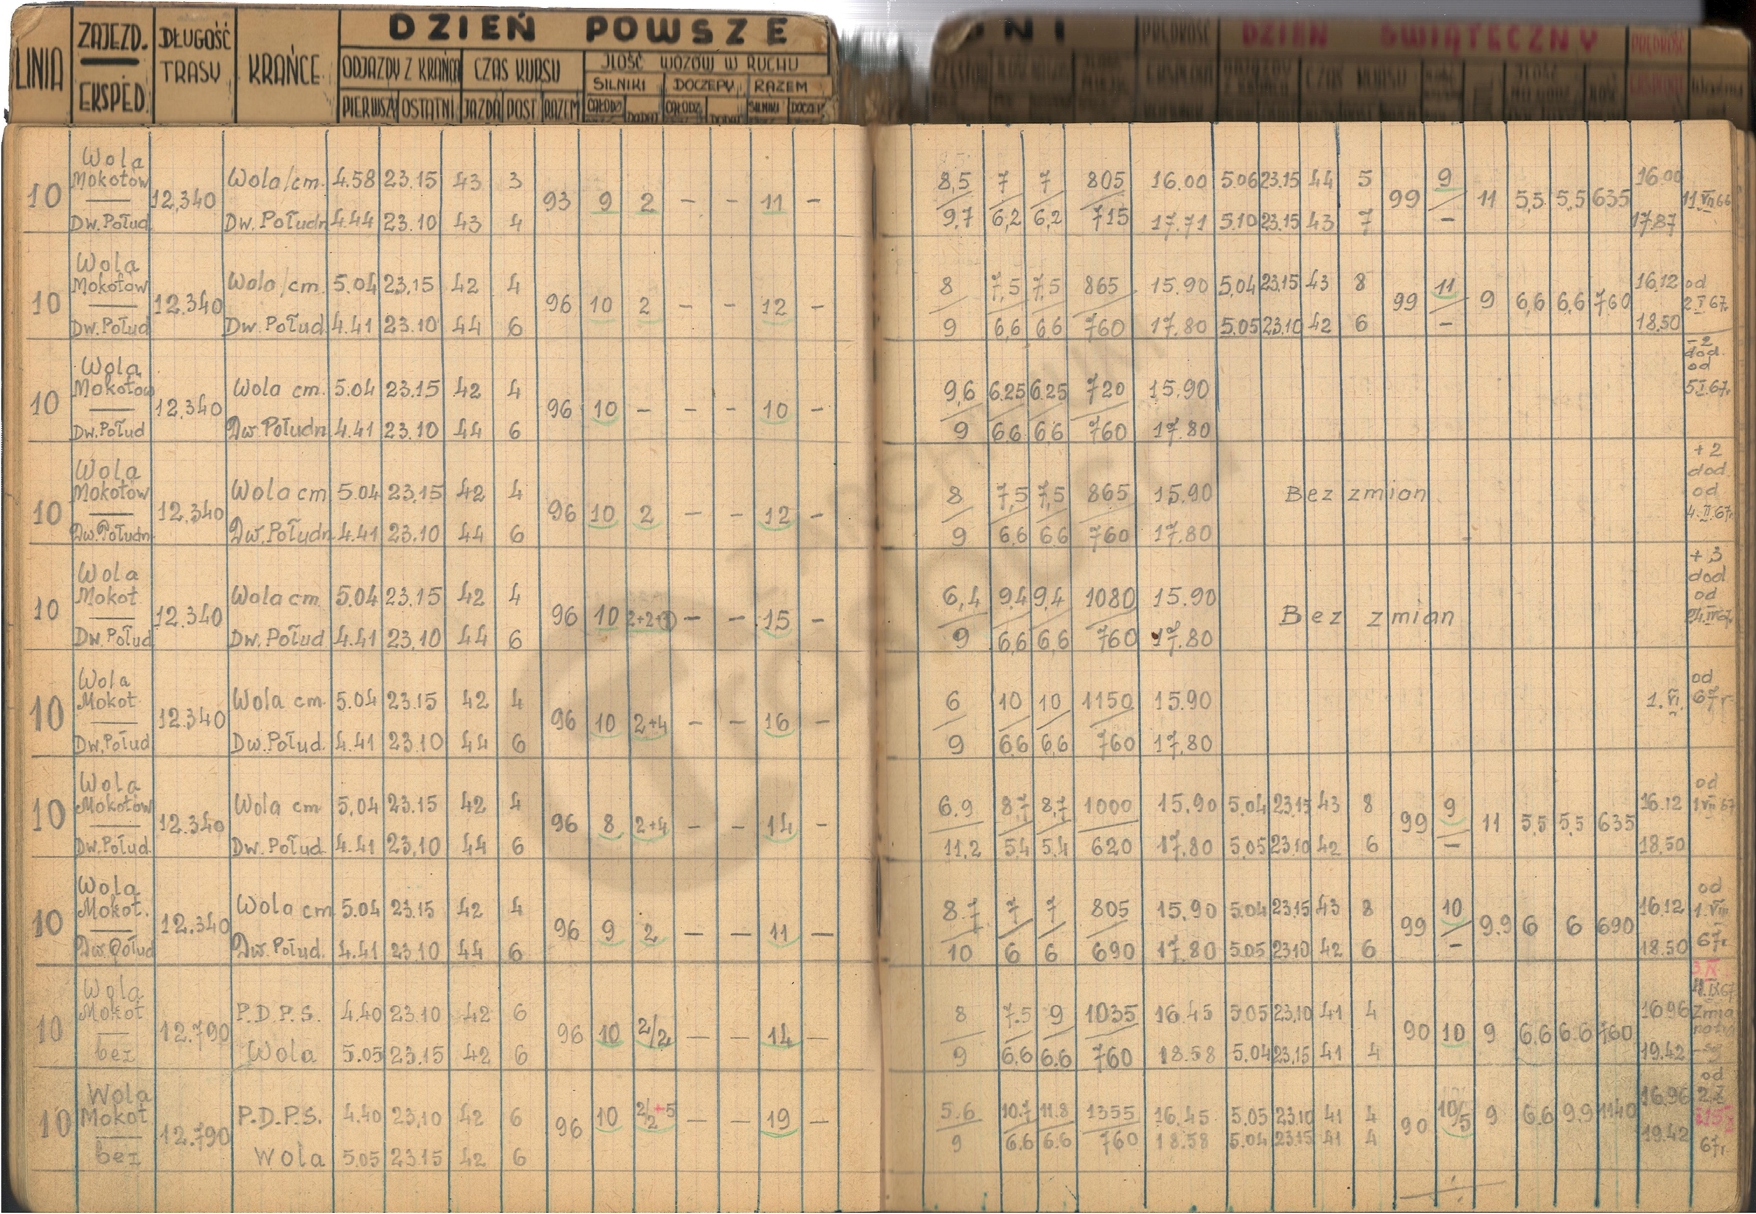 DZIEŃ POWSZE DNI PRĘDKOŚĆ DZIEŃ ŚWIĄTECZNY PRĘDKOŚĆ
LINIA ZAJEZD. EKSPED. DŁUGOŚĆ TRASY KRAŃCE ODJAZDY Z KRAŃCA CZAS KURSU JLOŚĆ WOZÓW W RUCHU
SILNIKI DOCZEPY RAZEM
PIERWSZY OSTATNI JAZDA POST RAZEM CAŁODZ. DODAT. CAŁODZ. DODAT. SILNIKI DOCZEP.
Wola
Mokotów Wola/cm. 4.58 23.15 43 3 8,5 7 7 805 16.00 5.06 23.15 44 5 9 16.00
10 12,340 93 9 2 – – 11 – 99 11 5,5 5,5 635 11.VII 66
Dw. Połud Dw. Połudn 4.44 23.10 43 4 9,7 6,2 6,2 715 17.71 5.10 23.15 43 7 – 17.87
Wola
Mokotów Wola/cm. 5.04 23.15 42 4 8 7,5 7,5 865 15.90 5,04 23.15 43 8 11 16.12 od
10 12.340 96 10 2 – – 12 – 99 9 6,6 6,6 760 2.I 67r
Dw. Połud Dw. Połud. 4.41 23.10 44 6 9 6,6 6,6 760 17.80 5.05 23.10 42 6 – 18.50
Wola –2
Mokotow dod.
od
Wola cm. 5.04 23.15 42 4 9,6 6.25 6.25 720 15.90 5.I.67r
10 12.340 96 10 – – – 10 –
Dw. Połud Dw. Połudn 4.41 23.10 44 6 9 6,6 6,6 760 17.80
Wola +2
dod.
Mokotów Wola cm 5.04 23.15 42 4 8 7,5 7,5 865 15.90 Bez zmian od
10 12.340 96 10 2 – – 12 – 4.II.67r
Dw. Połudn Dw. Połudn 4.41 23.10 44 6 9 6,6 6,6 760 17.80
Wola +3
dod
Mokot Wola cm 5.04 23.15 42 4 6,4 9,4 9,4 1080 15.90 od
10 12.340 96 10 – – 15 – Bez zmian
Dw. Połud Dw. Połud 4.41 23.10 44 6 9 6,6 6,6 760 17.80
Wola od
Mokot Wola cm. 5.04 23.15 42 4 6 10 10 1150 15.90 1.VI. 67r
10 12.340 96 10 2+4 – – 16 –
Dw. Połud Dw. Połud. 4.41 23.10 44 6 9 6,6 6,6 760 17.80
Wola od
Mokotów Wola cm 5,04 23.15 42 4 6.9 8,7 8,7 1000 15.90 5,04 23.15 43 8 9 16.12 1.VII 67
10 12.340 96 8 2+4 – – 14 – 99 11 5,5 5,5 635
Dw. Połud Dw. Połud 4.41 23,10 44 6 11,2 5,4 5,4 620 17.80 5.05 23.10 42 6 – 18.50
Wola od
Mokot. Wola cm 5.04 23.15 42 4 8.7 7 7 805 15.90 5.04 23.15 43 8 10 16.12 1.VIII
10 12.340 96 9 2 – – 11 – 99 9.9 6 6 690
Dw. Połud Dw. Połud. 4.41 23.10 44 6 10 6 6 690 17.80 5.05 23.10 42 6 – 18.50 67r.
Wola 3.IX
Mokot P.D.P.S. 4.40 23.10 42 6 8 7.5 9 1035 16.45 5.05 23,10 41 4 16.96
10 12.790 96 10 2/2 – – 14 – 90 10 9 6,6 6.6 760
bez Wola 5.05 23.15 42 6 9 6.6 6.6 760 18.58 5.04 23,15 41 4 19.42
Wola od
Mokot P.D.P.S. 4.40 23,10 42 6 5.6 10.7 11.8 1355 16.45 5.05 23.10 41 4 10/5 16.96
10 12.790 96 10 2/2+5 – – 19 – 90 9 6,6 9.9 1140
9 6.6 6.6 760 18.58 5.04 23.15 41 4 19.42
bez Wola 5.05 23.15 42 6 67r.